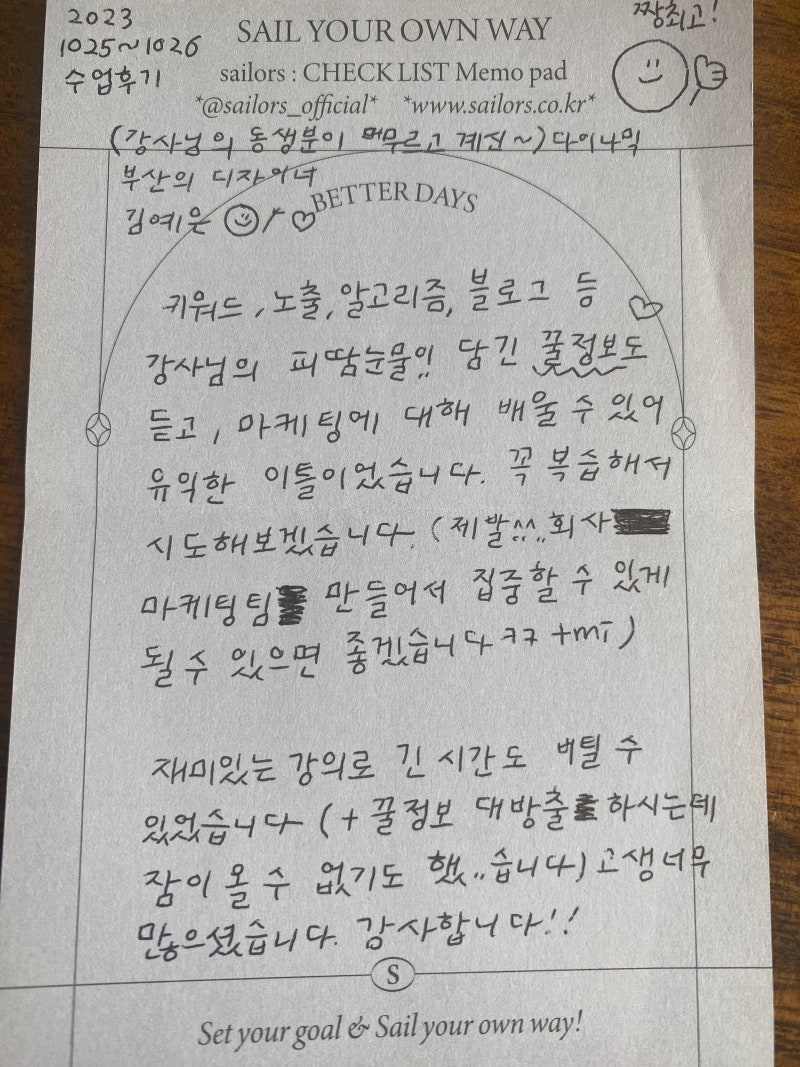 2023
1025~1026
수업후기
짱최고!
SAIL YOUR OWN WAY
sailors : CHECK LIST Memo pad
*@sailors_official* *www.sailors.co.kr*
(강사님의 동생분이 머무르고 계신~) 다이나믹
부산의 디자이너
김예은
BETTER DAYS
키워드, 노출, 알고리즘, 블로그 등
강사님의 피땀눈물이.. 담긴 꿀정보도
듣고, 마케팅에 대해 배울 수 있어
유익한 이틀이었습니다. 꼭 복습해서
시도해보겠습니다. (제발^^.. 회사
마케팅팀 만들어서 집중할 수 있게
될 수 있으면 좋겠습니다ㅋㅋ +mī)
재미있는 강의로 긴 시간도 버틸 수
있었습니다 (+ 꿀정보 대방출 하시는데
잠이 올 수 없기도 했..습니다) 고생너무
많으셨습니다. 감사합니다!!
S
Set your goal & Sail your own way!